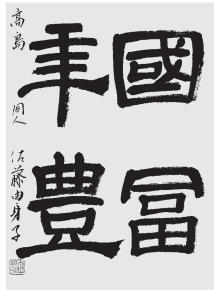 國冨
年豊
高島 同人 佐藤由身子